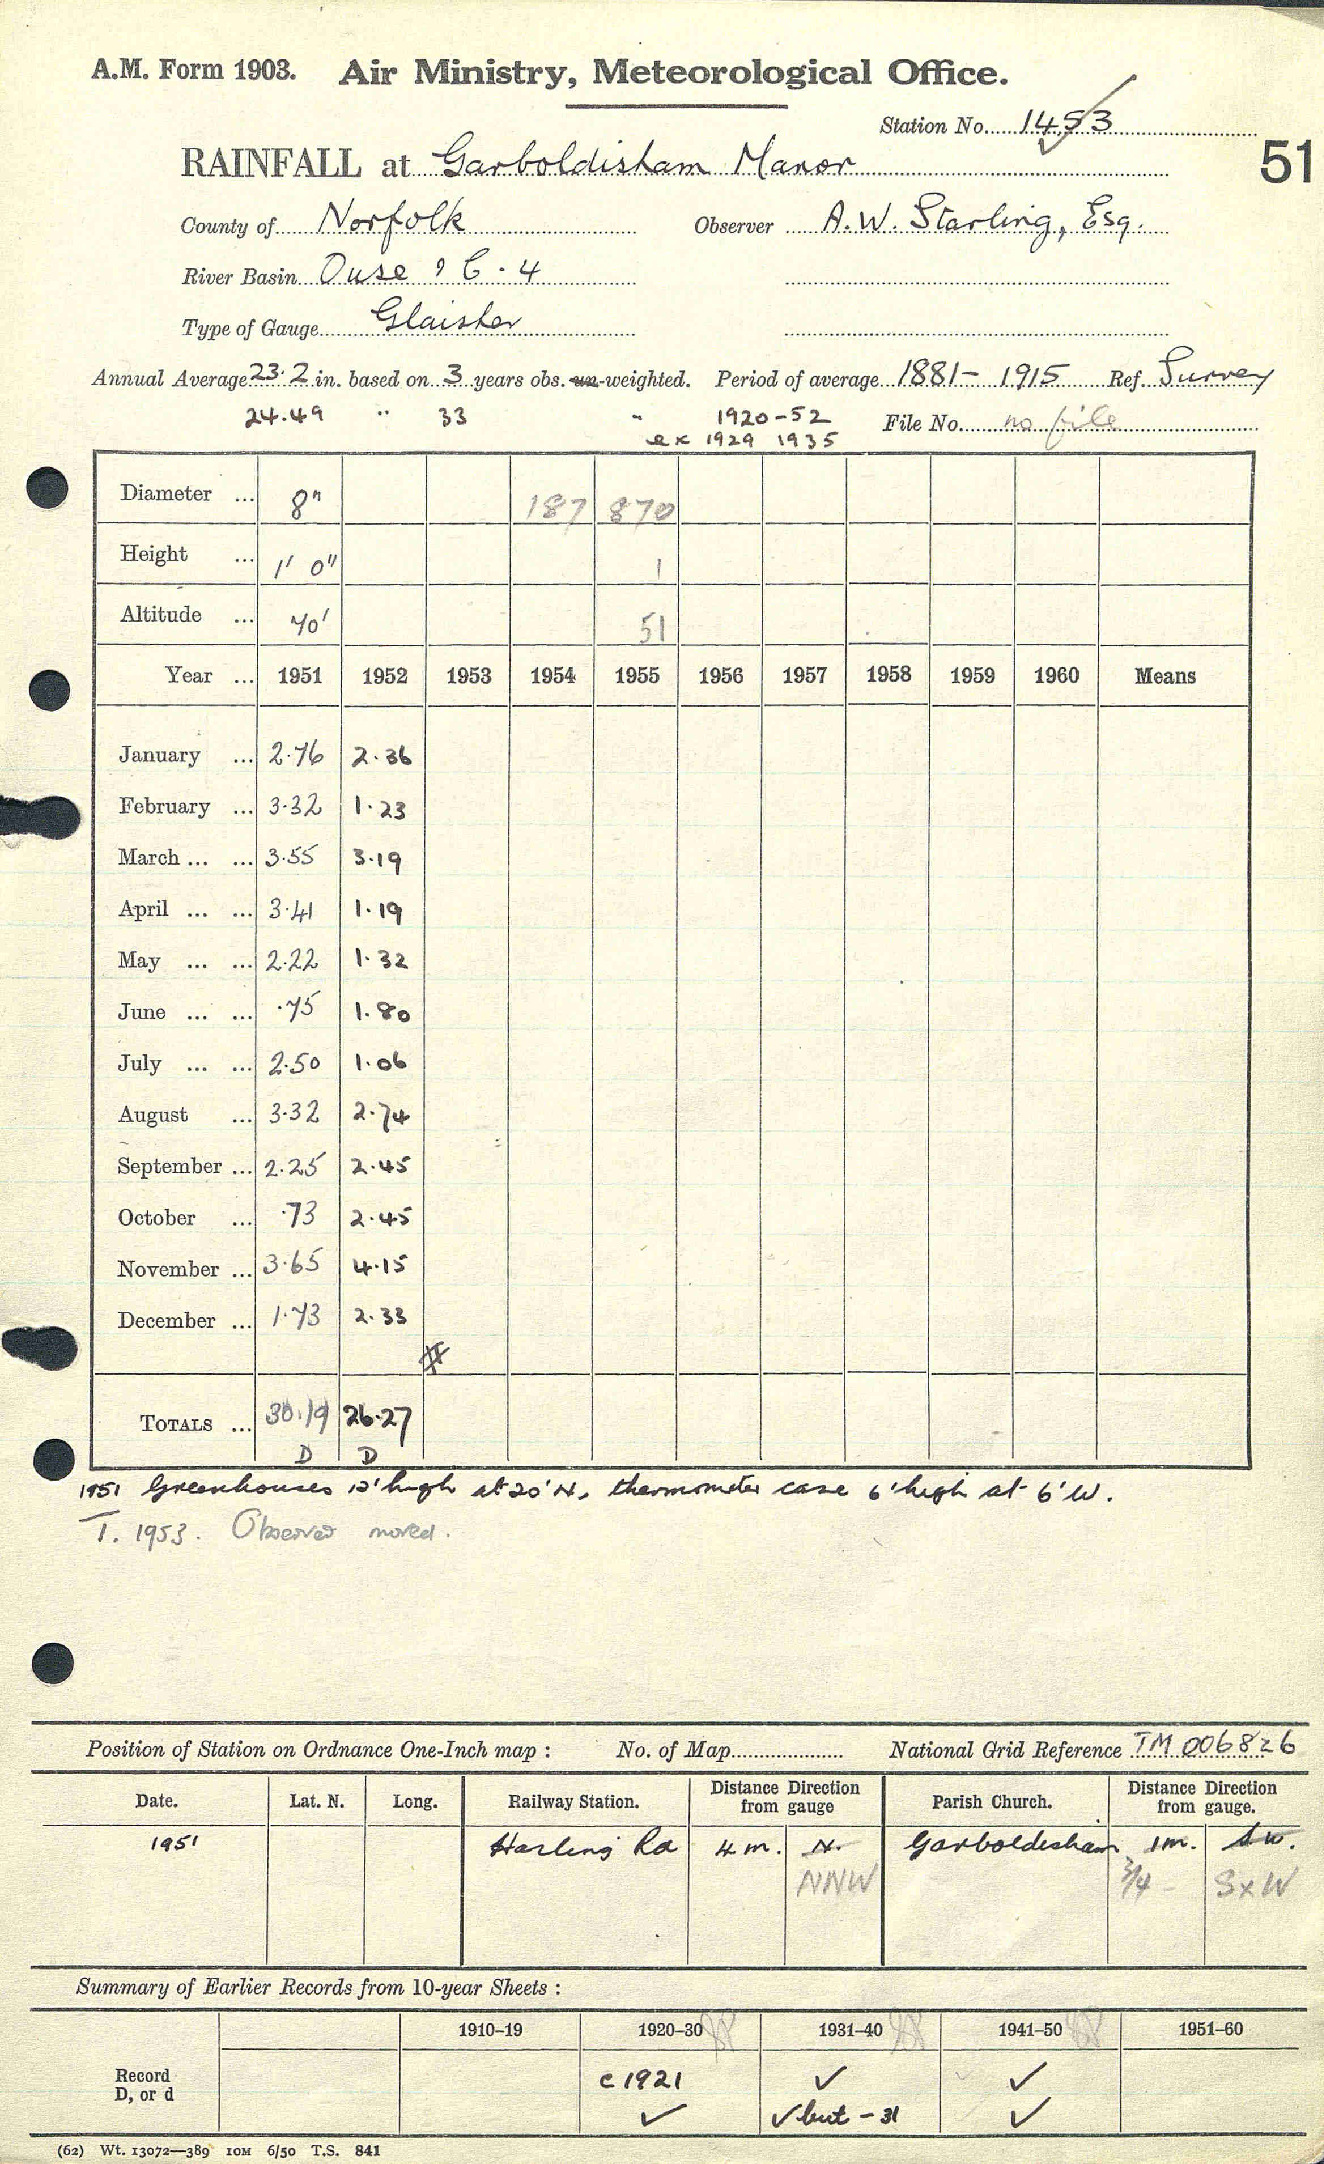 A.M. Form 1903. Air Ministry, Meteorological Office.
Station No. 1453
51
RAINFALL at Garboldisham Manor
County of Norfolk Observer A.W. Starling, Esq.
River Basin Ouse 9 C. 4
Type of Gauge Glaisher
Annual Average 23.2 in. based on 3 years obs. un-weighted. Period of average 1881-1915 Ref. Survey
24.49 " 33 " 1920-52 File No. no file
ex 1929 1935
Diameter ... 8" 187 870
Height ... 1' 0" 1
Altitude ... 70' 51
Year ... 1951 1952 1953 1954 1955 1956 1957 1958 1959 1960 Means
January ... 2.76 2.36
February ... 3.32 1.23
March ... ... 3.55 3.19
April ... ... 3.41 1.19
May ... ... 2.22 1.32
June ... ... .75 1.80
July ... ... 2.50 1.06
August ... 3.32 2.74
September ... 2.25 2.45
October ... .73 2.45
November ... 3.65 4.15
December ... 1.73 2.33
TOTALS ... 30.19 26.27
D D
1951 Greenhouses 12' high at 20' N, thermometer case 6' high at 6' W.
T. 1953. Observer moved.
Position of Station on Ordnance One-Inch map : No. of Map National Grid Reference TM 006826
Date. Lat. N. Long. Railway Station. Distance Direction from gauge Parish Church. Distance Direction from gauge.
1951 Harling Rd 4 m. N. Garboldisham 1m. SW.
NNW 3/4 SxW
Summary of Earlier Records from 10-year Sheets :
1910-19 1920-30 1931-40 1941-50 1951-60
Record c 1921 ✓ ✓
D, or d ✓ ✓ but - 31 ✓
(62) Wt. 13072—389 10M 6/50 T.S. 841